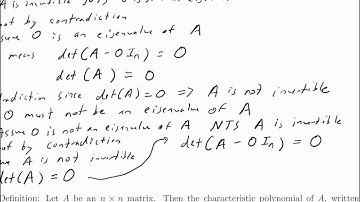 A is invertible
not by contradiction
ume 0 is an eigenvalue of A
means det(A - 0 Iₙ) = 0
det (A) = 0
adiction since det(A) = 0 ⇒ A is not invertible
0 must not be an eigenvalue of A
Assume 0 is not an eigenvalue of A NTS A is invertible
of by contradiction det(A - 0 Iₙ) = 0
me A is not invertible
det(A) = 0
Definition: Let A be an n × n matrix. Then the characteristic polynomial of A, written